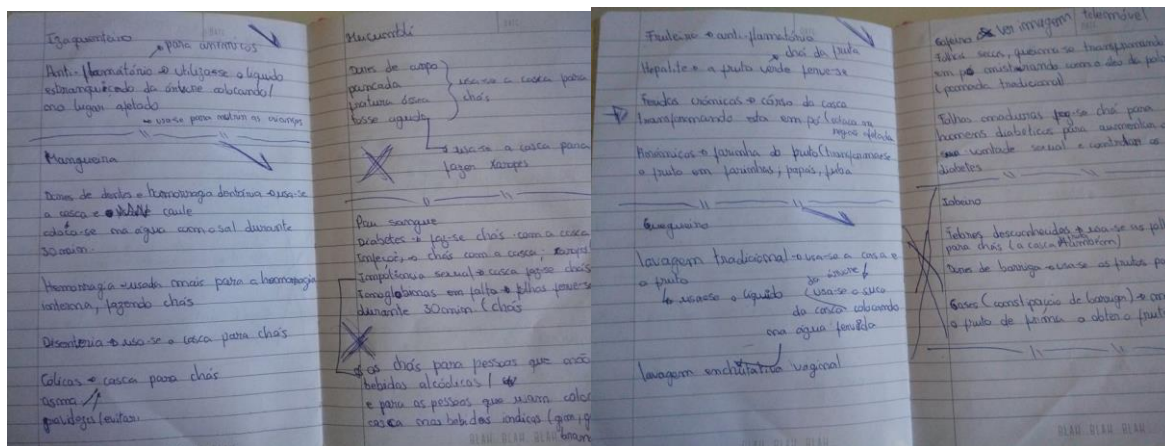 Izaquenteiro
para anémicos
Anti-flamatório → utilizasse o líquido
da árvore colocando/
no lugar afetado
→ usa-se para nutrir as crianças
Mangueira
Dores de dentes e homorragia dentária → usa-se
a casca e o caule
coloca-se na água com o sal durante
30 min.
Hemorragia → usada mais para a hemorragia
interna, fazendo chás
Disenteria → usa-se a casca para chás
Cólicas → casca para chás
asma
Mucumbli
Dores de corpo
pancada
fratura óssea
tosse aguda
usa-se a casca para
chás
usa-se a casca para
fazer xaropes
Pau sangue
Diabetes → faz-se chás com a casca
chás com a casca;
Impotência sexual → casca faz-se chás
em falta → folhas ferve-se
durante 30 min (chás
os chás para pessoas que não
bebidas alcóolicas /
e para as pessoas que usam
casca nas bebidas
Fruteira → anti-flamatório
chá da fruta
Hepatite → a fruta verde ferve-se
Feridas crónicas → casca
transformando esta em pó (coloca na
região afetada
farinha do fruto (transforma-se
a fruta em farinhas, papas, fuba
lavagem tradicional → usa-se a casca e
o fruto
da árvore
→ usasse o líquido
(usa-se o suco
da casca colocando
na água fervida
lavagem vaginal
ver imagem telemóvel
Folha seca, queima-se transformando
em pó misturando com o óleo de
(pomada tradicional)
Folhas maduras faz-se chá para
homens diabéticos para aumentar a
vontade sexual e controlar as
diabetes
Febres desconhecidas → usa-se as folhas
para chás (a casca também)
Dores de barriga → usa-se os frutos
Gases (constipação de barriga) →
o fruto de forma a obter o fruto
BLAH BLAH BLAH
BLAH BLAH BLAH